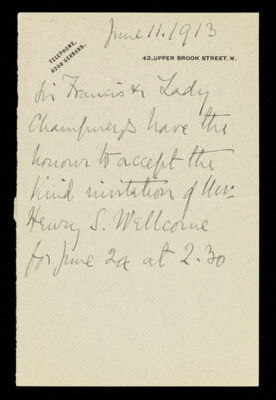 June 11. 1913
TELEPHONE,
6308 GERRARD.
42, UPPER BROOK STREET, W.
Sir Francis & Lady
Champneys have the
honour to accept the
kind invitation of Mr.
Henry S. Wellcome
for June 24 at 2.30